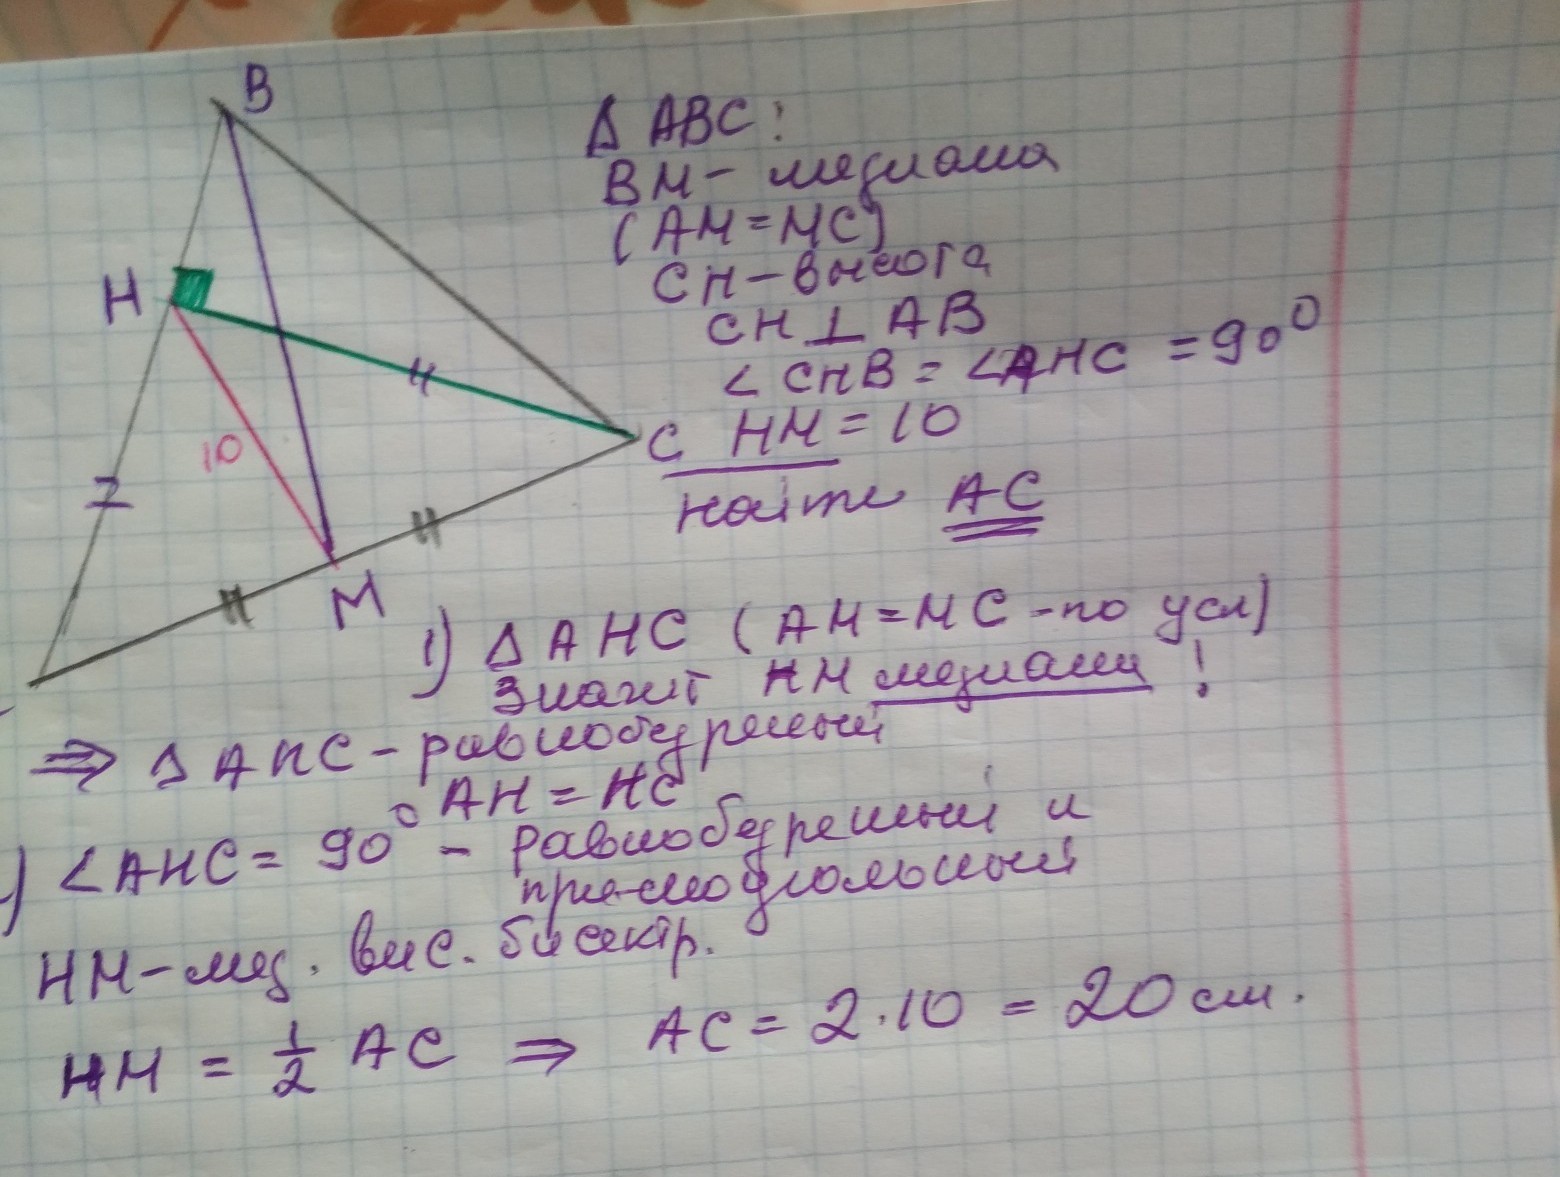 B
Δ ABC:
BM - медиана
(AM = MC)
CH - высота
CH ⊥ AB
∠ CHB = ∠AHC = 90°
H
C
HM = 10
10
найти AC
M
1) Δ AHC (AM = MC - по усл)
значит HM медиана !
⇒ Δ AHC - равнобедренный
AH = HC
) ∠AHC = 90° - равнобедренный и
прямоугольный
HM - мед. выс. биссектр.
HM = 1/2 AC ⇒ AC = 2·10 = 20 см.